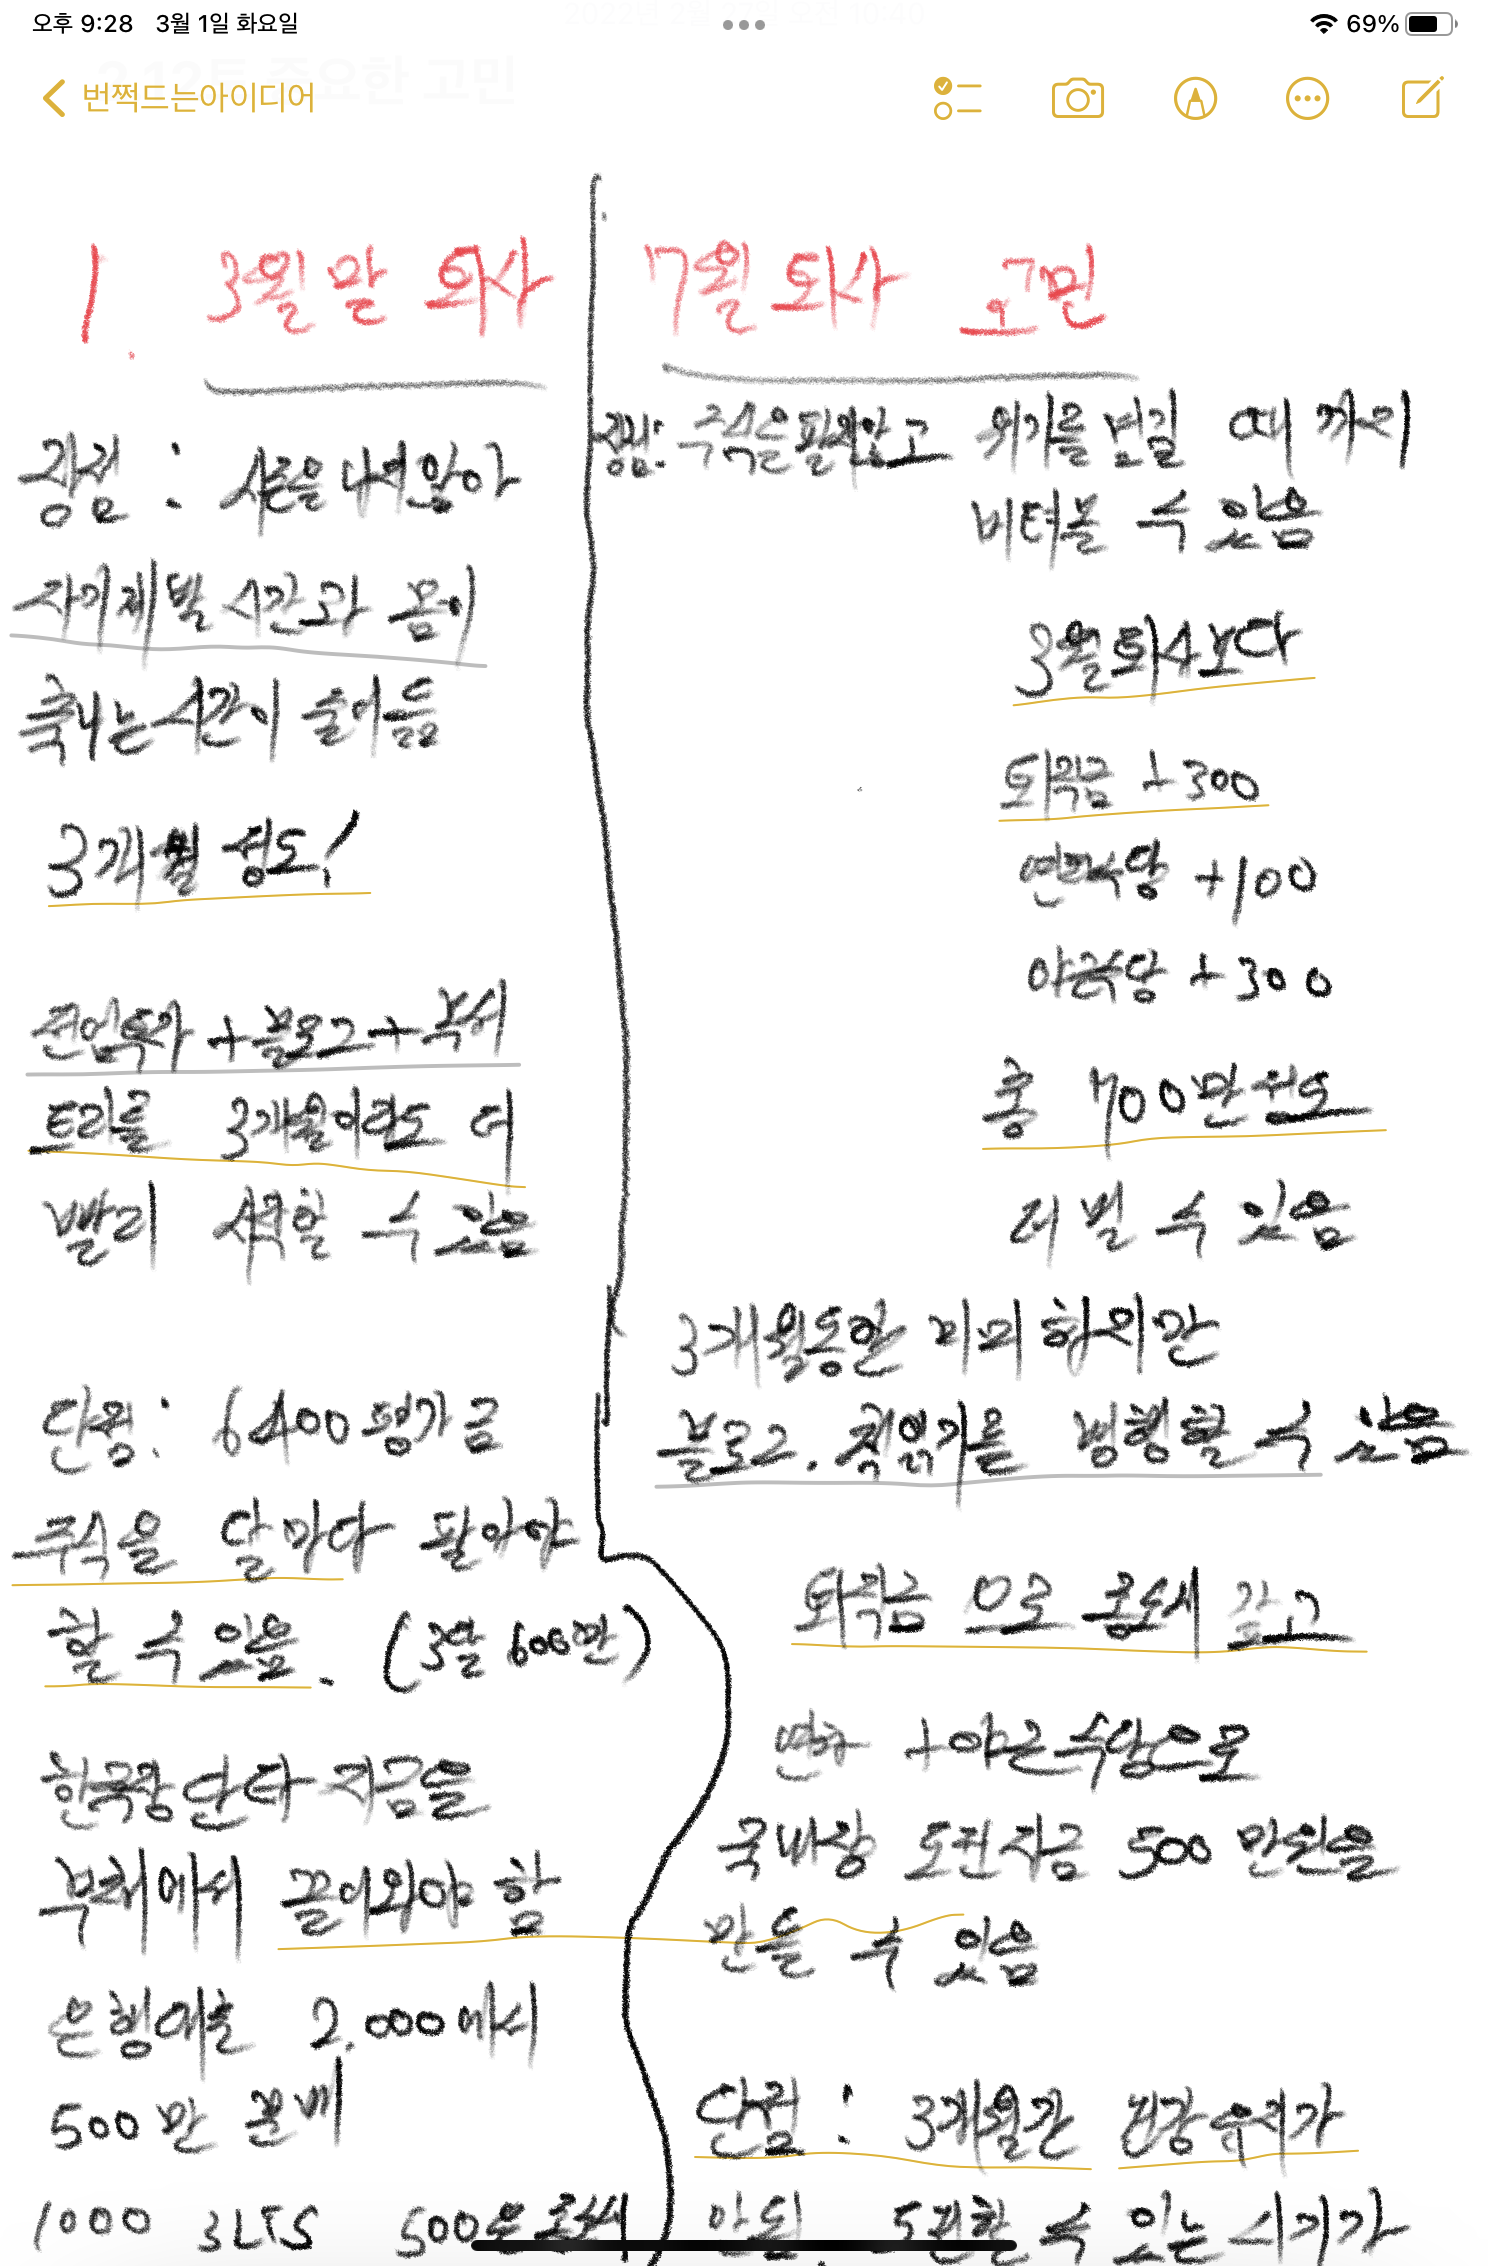 오후 9:28 3월 1일 화요일
69%
번쩍드는아이디어
1. 3월 말 퇴사
장점 : 서른을 내려놓아
자기계발 시간과 몸이
축나는 시간이 줄어듦
3개월 정도!
전업투자 +블로그+부서
트리를 3개월이라도 더
빨리 시작할 수 있음
단점: 6400 평가금
주식을 달마다 팔아야
할 수 있음. (3달 600만)
한국장 단타 자금을
부채에서 끌어와야 함
은행대출 2.000에서
500만
1000 3LTS 500은
7월 퇴사 고민
장점: 주식은 팔지않고 위기를 넘길 때 까지
버텨볼 수 있음
3월퇴사보다
퇴직금 +300
연차수당 +100
야근수당 +300
총 700만원도
더 벌 수 있음
3개월동안 미미하지만
블로그. 책읽기를 병행할 수 있음
퇴직금 으로 월세 갚고
연차 +야근수당으로
국내장 도전자금 500 만원을
만들 수 있음
단점 : 3개월간 건강유지가
안됨. 도전할 수 있는 시기가